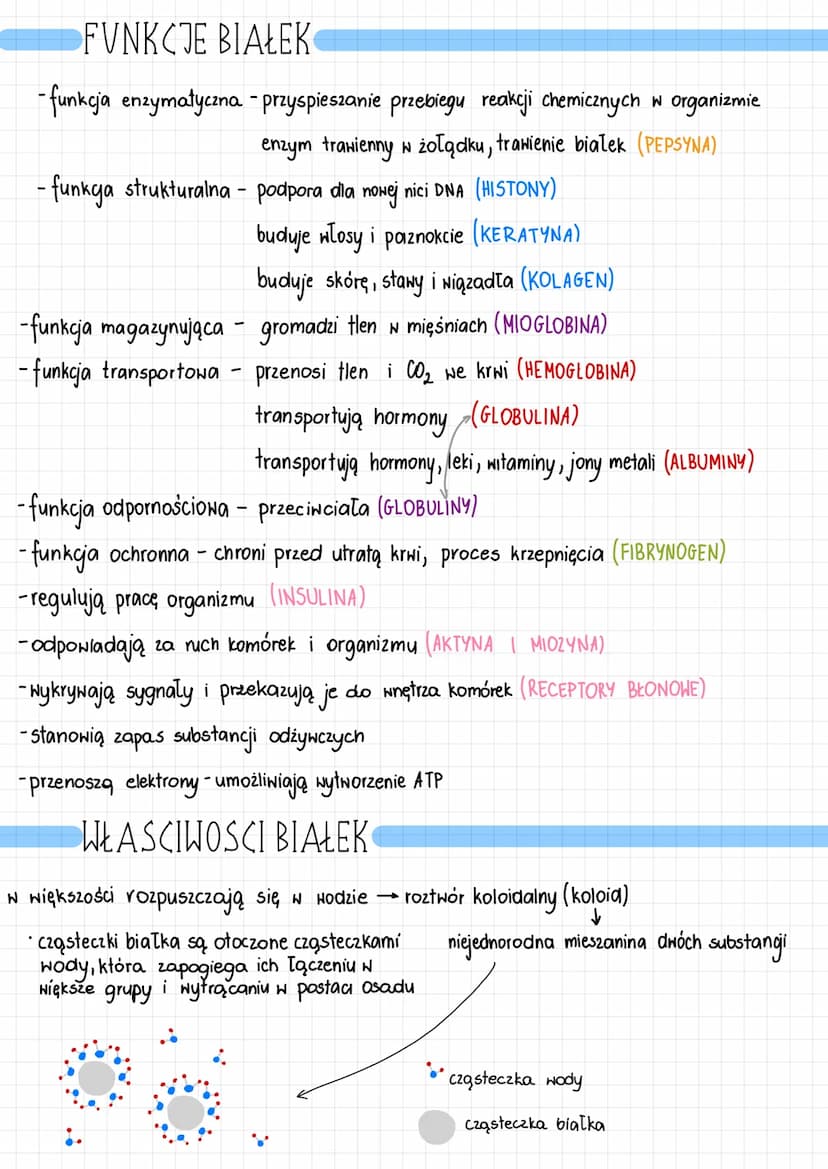 FUNKCJE BIAŁEK
- funkcja enzymatyczna - przyspieszanie przebiegu reakcji chemicznych w organizmie
enzym trawienny w żołądku, trawienie białek (PEPSYNA)
- funkcja strukturalna - podpora dla nowej nici DNA (HISTONY)
buduje włosy i paznokcie (KERATYNA)
buduje skórę, stawy i wiązadła (KOLAGEN)
- funkcja magazynująca - gromadzi tlen w mięśniach (MIOGLOBINA)
- funkcja transportowa - przenosi tlen i CO₂ we krwi (HEMOGLOBINA)
transportują hormony (GLOBULINA)
transportują hormony, leki, witaminy, jony metali (ALBUMINY)
- funkcja odpornościowa - przeciwciała (GLOBULINY)
- funkcja ochronna - chroni przed utratą krwi, proces krzepnięcia (FIBRYNOGEN)
- regulują pracę organizmu (INSULINA)
- odpowiadają za ruch komórek i organizmu (AKTYNA I MIOZYNA)
- wykrywają sygnały i przekazują je do wnętrza komórek (RECEPTORY BŁONOWE)
- stanowią zapas substancji odżywczych
- przenoszą elektrony - umożliwiają wytworzenie ATP
WŁAŚCIWOŚCI BIAŁEK
w większości rozpuszczają się w wodzie → roztwór koloidalny (koloid)
niejednorodna mieszanina dwóch substancji
· cząsteczki białka są otoczone cząsteczkami
wody, która zapogiega ich łączeniu w
większe grupy i wytrącaniu w postaci osadu
cząsteczka wody
cząsteczka białka